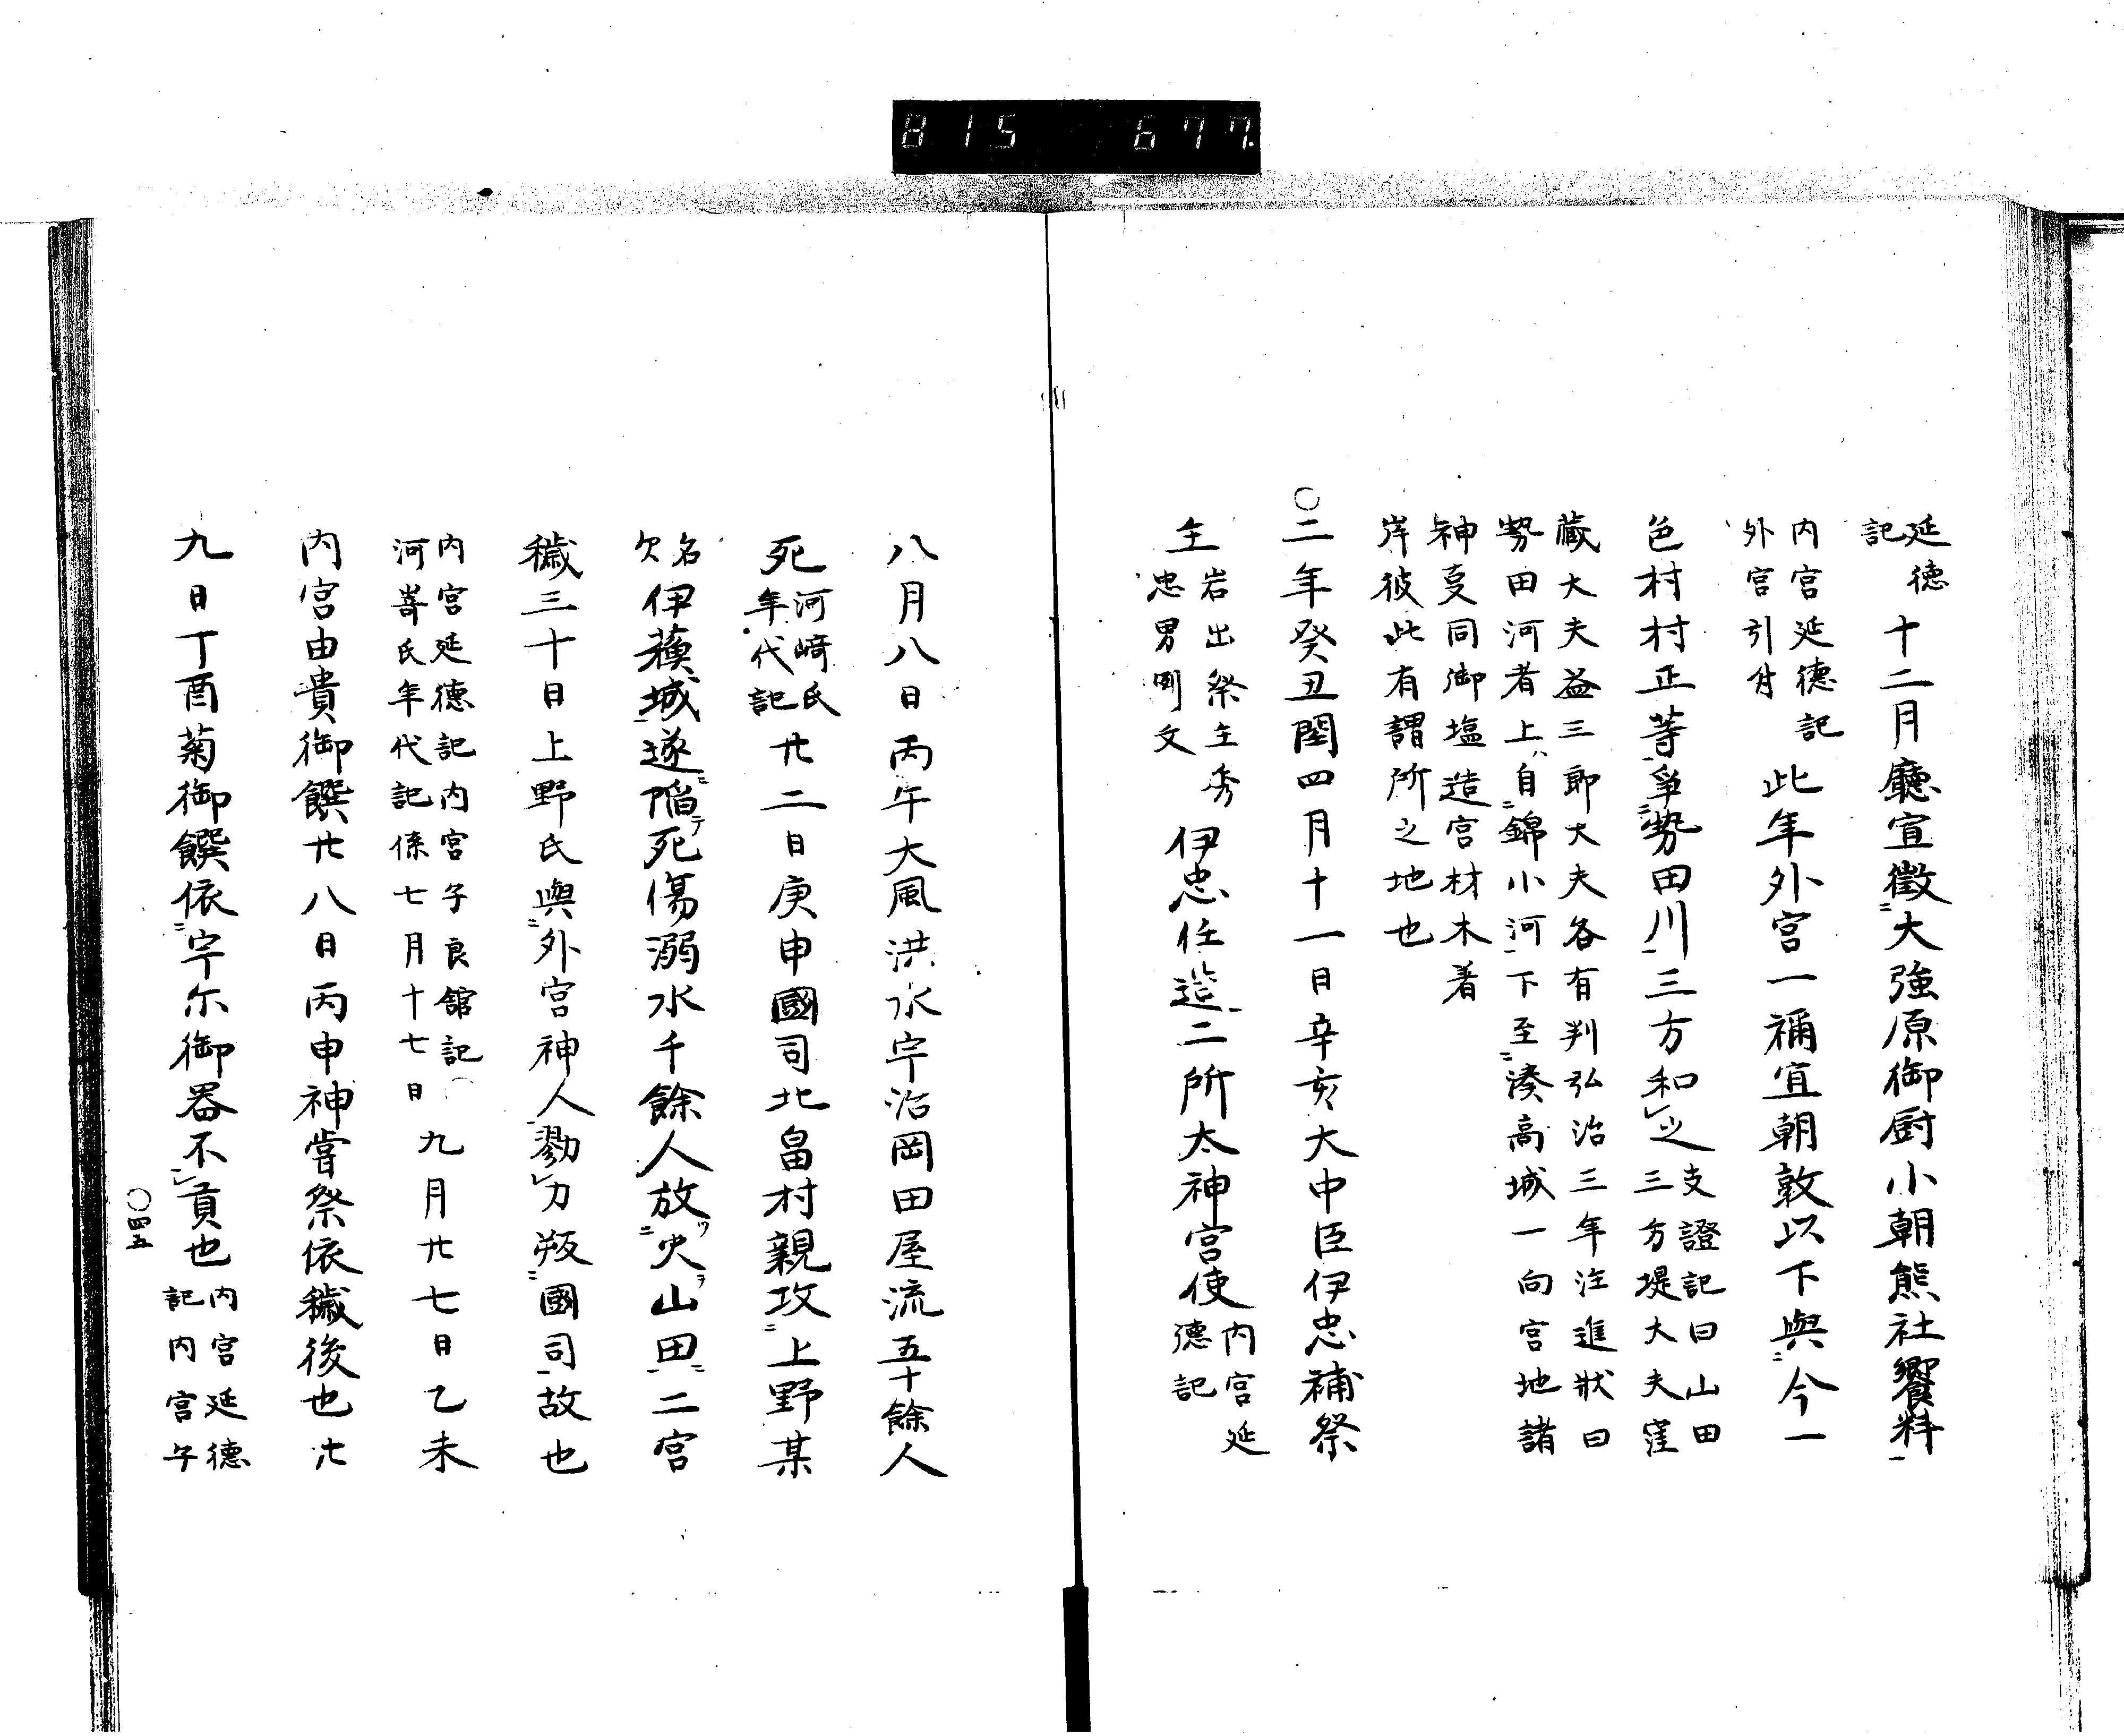 815 677.
延徳
記
十二月廳宣徴大強原御厨小朝熊社饗料
内宮延徳記
外宮引付
此年外宮一禰宜朝敦以下與今一
色村村正等爭勢田川三方和之
支證記曰山田
三方堤大夫窪
藏大夫益三郎大夫各有判弘治三年注進狀曰
勢田河者上ハ自錦小河下至湊高城一向宮地諸
神㕝同御塩造宮材木着
岸彼此有謂所之地也
○二年癸丑閏四月十一日辛亥大中臣伊忠補祭
主
岩出祭主秀
忠男闕文
伊忠任造二所太神宮使
内宮延
德記
八月八日丙午大風洪水宇治岡田屋流五十餘人
死
河﨑氏
年代記
廿二日庚申國司北畠村親攻上野某
名
欠
伊蘓城遂陷テ死傷溺水千餘人放ツ火ヲ山田二宮
穢三十日上野氏與外宮神人勠力叛國司故也
内宮延德記内宮子良舘記
河嵜氏年代記係七月十七日
九月廿七日乙未
内宮由貴御饌廿八日丙申神嘗祭依穢後也廿
九日丁酉菊御饌依宇尓御器不貢也
内宮延德
記内宮午
○四五